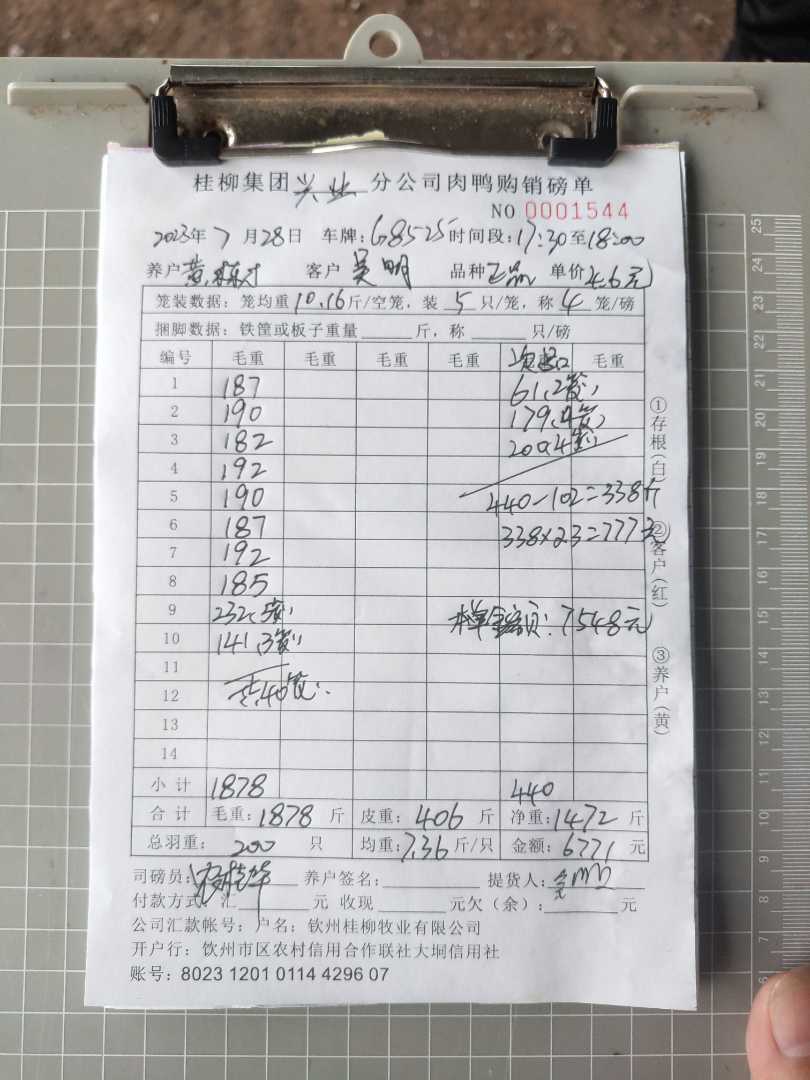 桂柳集团兴业分公司肉鸭购销磅单
NO 0001544
2023年7月28日 车牌:G8525 时间段:17:30至18:00
养户 黄 客户 吴明 品种 正品 单价 4.6元
笼装数据: 笼均重10.16斤/空笼, 装5只/笼, 称4笼/磅
捆脚数据: 铁筐或板子重量 斤, 称 只/磅
编号 毛重 毛重 毛重 毛重 毛重
1 187 61(2笼)
2 190 179(4笼)
3 182 200(4笼)
4 192
5 190 440-102=338斤
6 187 338×2.3=777元
7 192
8 185
9 232(5笼) 本单金额:7548元
10 141(3笼)
11
12 共40笼
13
14
小计 1878 440
合计 毛重:1878斤 皮重:406斤 净重:1472斤
总羽重: 200 只 均重:7.36斤/只 金额:6771元
司磅员: 养户签名: 提货人:
付款方式: 汇 元 收现 元欠(余): 元
公司汇款帐号: 户名: 钦州桂柳牧业有限公司
开户行: 钦州市区农村信用合作联社大垌信用社
账号: 8023 1201 0114 4296 07
①存根(白) ②客户(红) ③养户(黄)
25
24
23
22
21
20
19
18
17
16
15
14
13
12
11
10
9
8
7
6